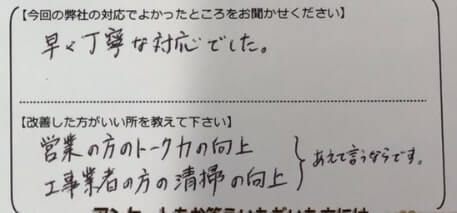 【今回の弊社の対応でよかったところをお聞かせください】
早々丁寧な対応でした。
【改善した方がいい所を教えて下さい】
営業の方のトーク力の向上
工事業者の方の清掃の向上
あえて言うならです。